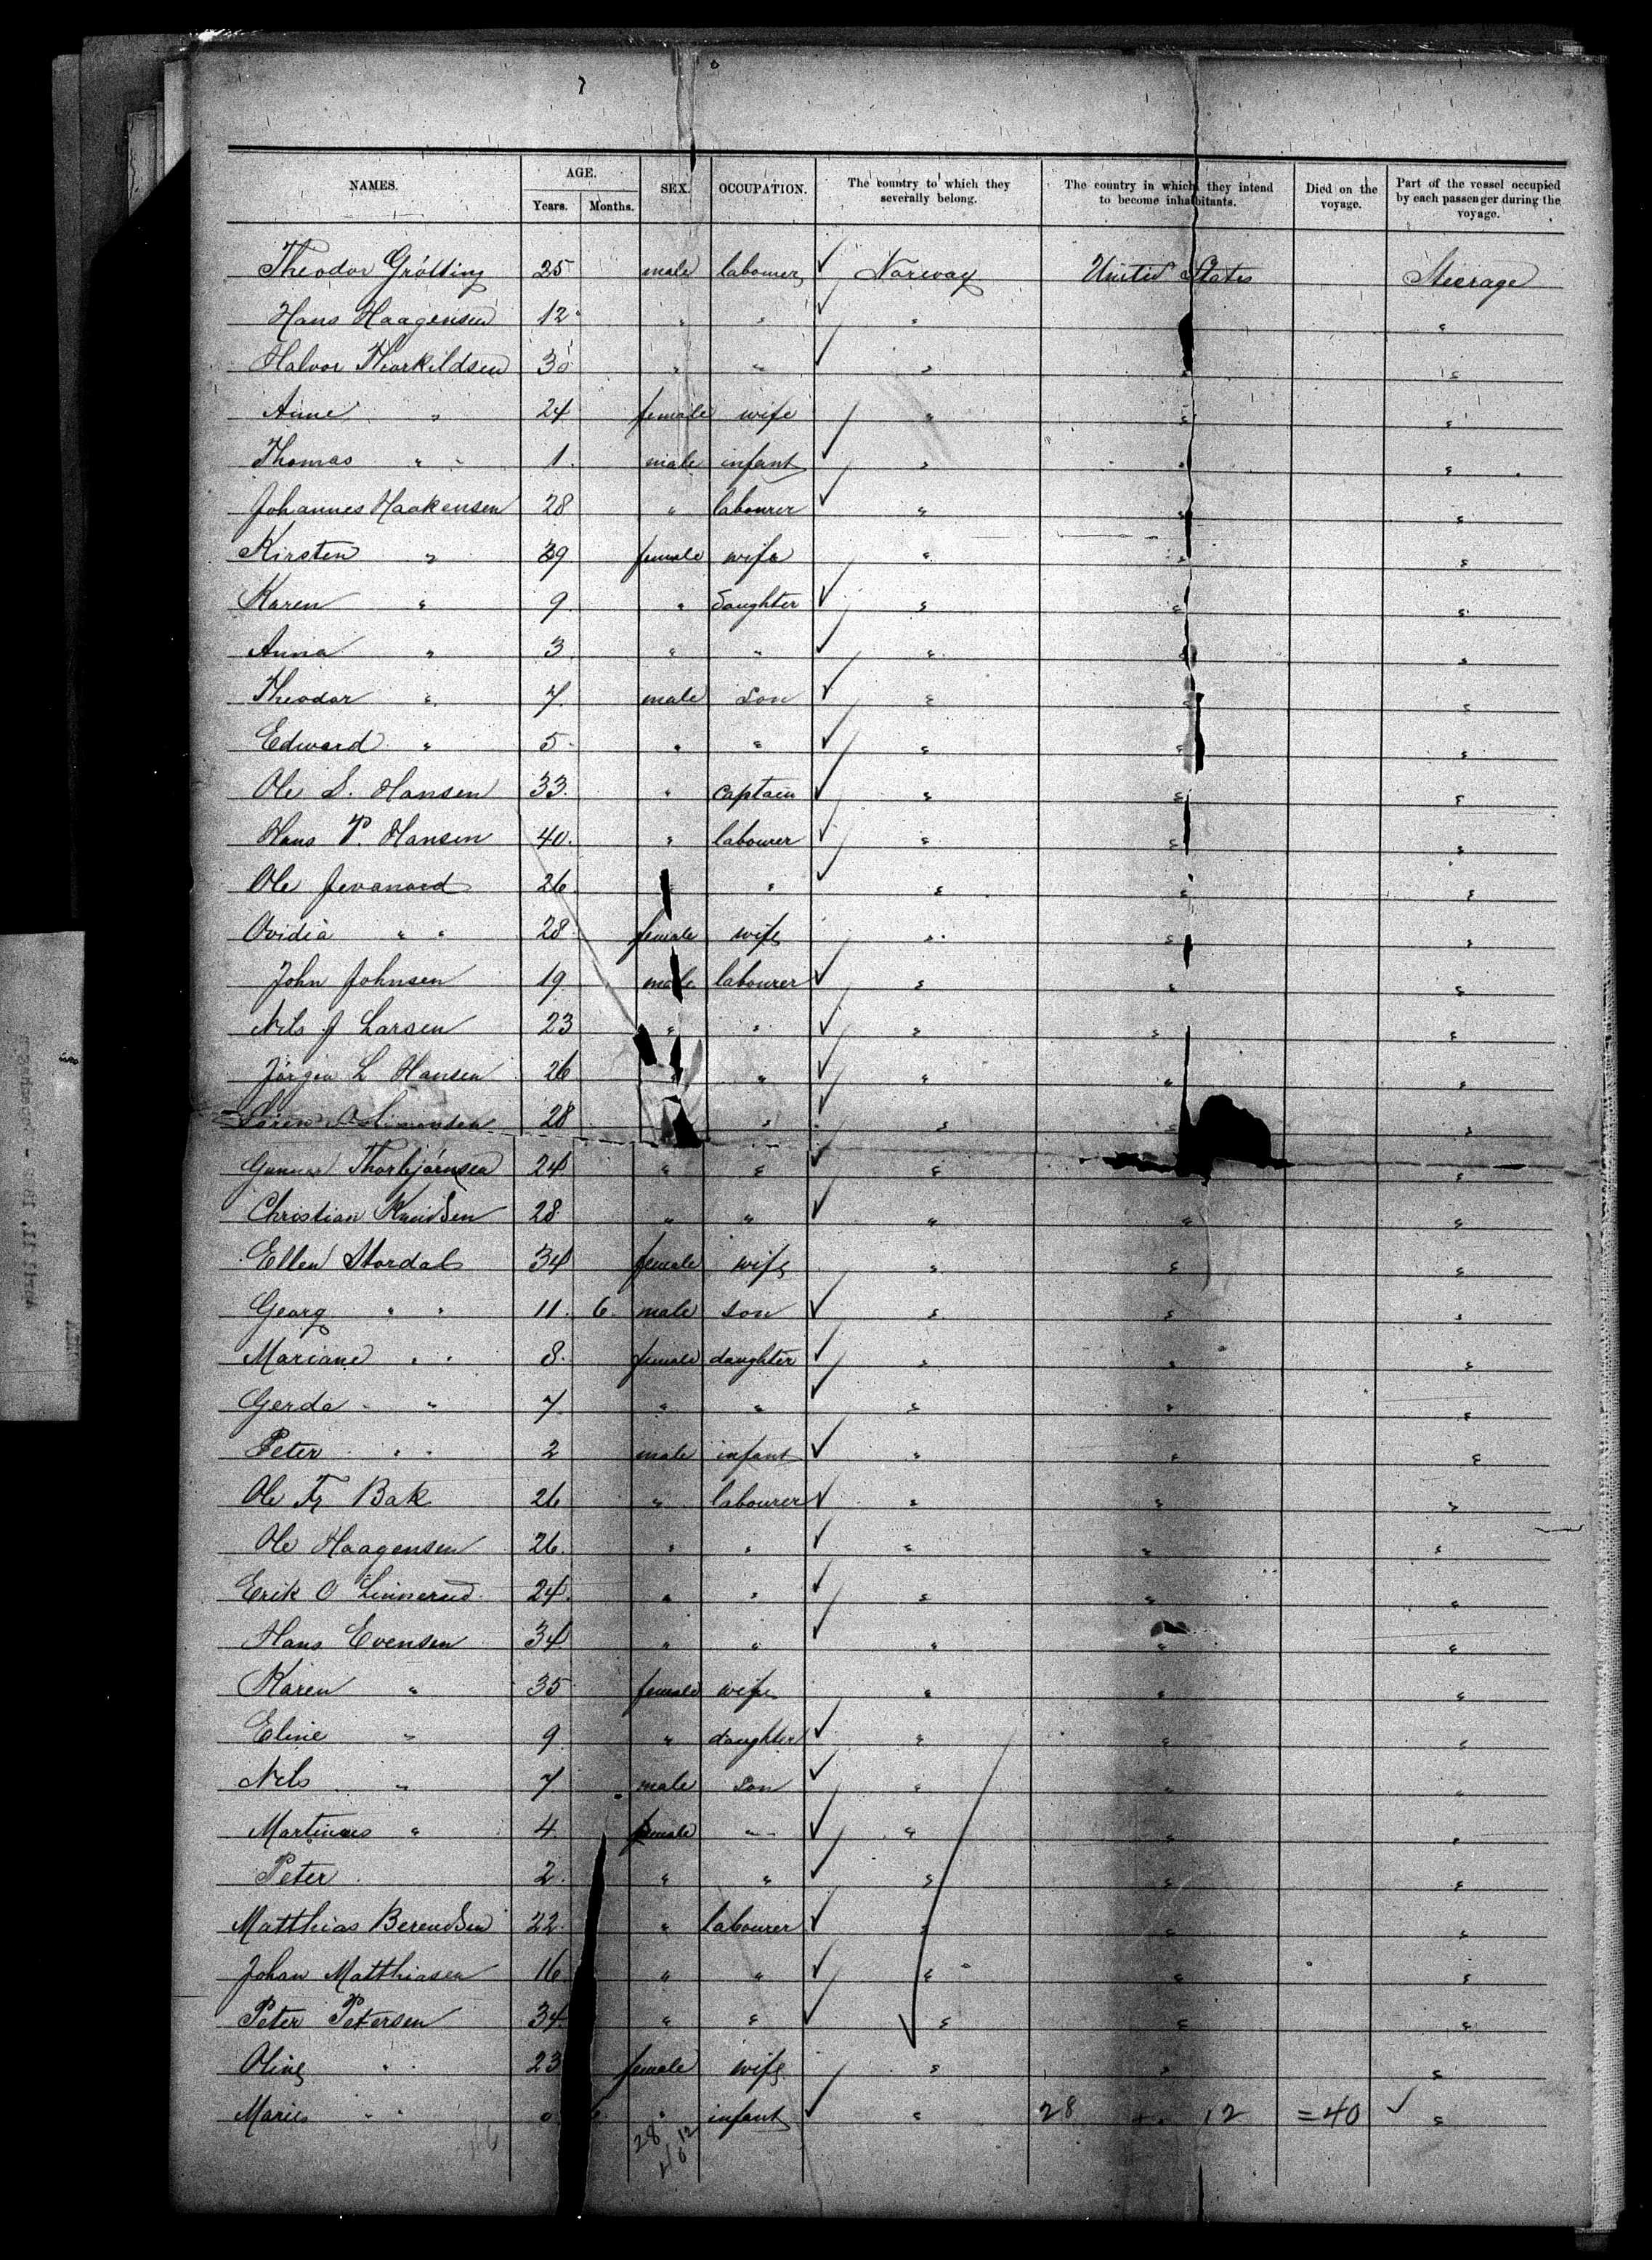 NAMES. AGE. SEX. OCCUPATION. The country to which they severally belong. The country in which they intend to become inhabitants. Died on the voyage. Part of the vessel occupied by each passenger during the voyage.
Years. Months.
Theodor Grötting 25 male labourer ✓ Norway United States Steerage
Hans Haagensen 12 " " ✓ " "
Halvor Thorkildsen 30 " " ✓ " " "
Anne " 24 female wife " " "
Thomas " " 1. male infant ✓ " " "
Johannes Haakensen 28 " labourer ✓ " " "
Kirsten " 29 female wife " " "
Karen " 9 " Daughter ✓ " " "
Anna " 3 " " ✓ " " "
Theodor " 7. male Son ✓ " " "
Edward " 5. " " ✓ " " "
Ole S. Hansen 33. " Captain ✓ " " "
Hans P. Hansen 40. " labourer ✓ " " "
Ole 26 " " ✓ " " "
Ovidia " " 28 female wife " " "
John Johnsen 19 male labourer ✓ " " "
Nils J Larsen 23 " " ✓ " " "
Jörgen L Hansen 26 " " ✓ " " "
Sören O Simonsen 28 " ✓ " " "
Gunner Thorbjörnsen 24 " " ✓ " "
Christian Knudsen 28 " " ✓ " " "
Ellen Stordal 34 female wife " " "
Georg " " 11. 6. male son ✓ " " "
Mariane " " 8. female daughter ✓ " " "
Gerda " " 7. " " ✓ " " "
Peter " " 2 male infant ✓ " " "
Ole Fr Bak 26 " labourer ✓ " " "
Ole Haagensen 26. " " ✓ " " "
Erik O Linnerud 24. " " ✓ " " "
Hans Evensen 34 " " ✓ " " "
Karen " 35 female wife " " "
Eline " 9 " daughter ✓ " " "
Nels " 7 male Son ✓ " " "
Martinus " 4. male " ✓ " " "
Peter 2. " " ✓ " " "
Matthias Berendsen 22. " labourer ✓ " " "
Johan Matthiasen 16 " " ✓ " " "
Peter Petersen 34 " " ✓ " " "
Oline " 23 female wife " " "
Marie " " 0 6. " infant ✓ " 28 + 12 = 40 ✓ "
28 12
40